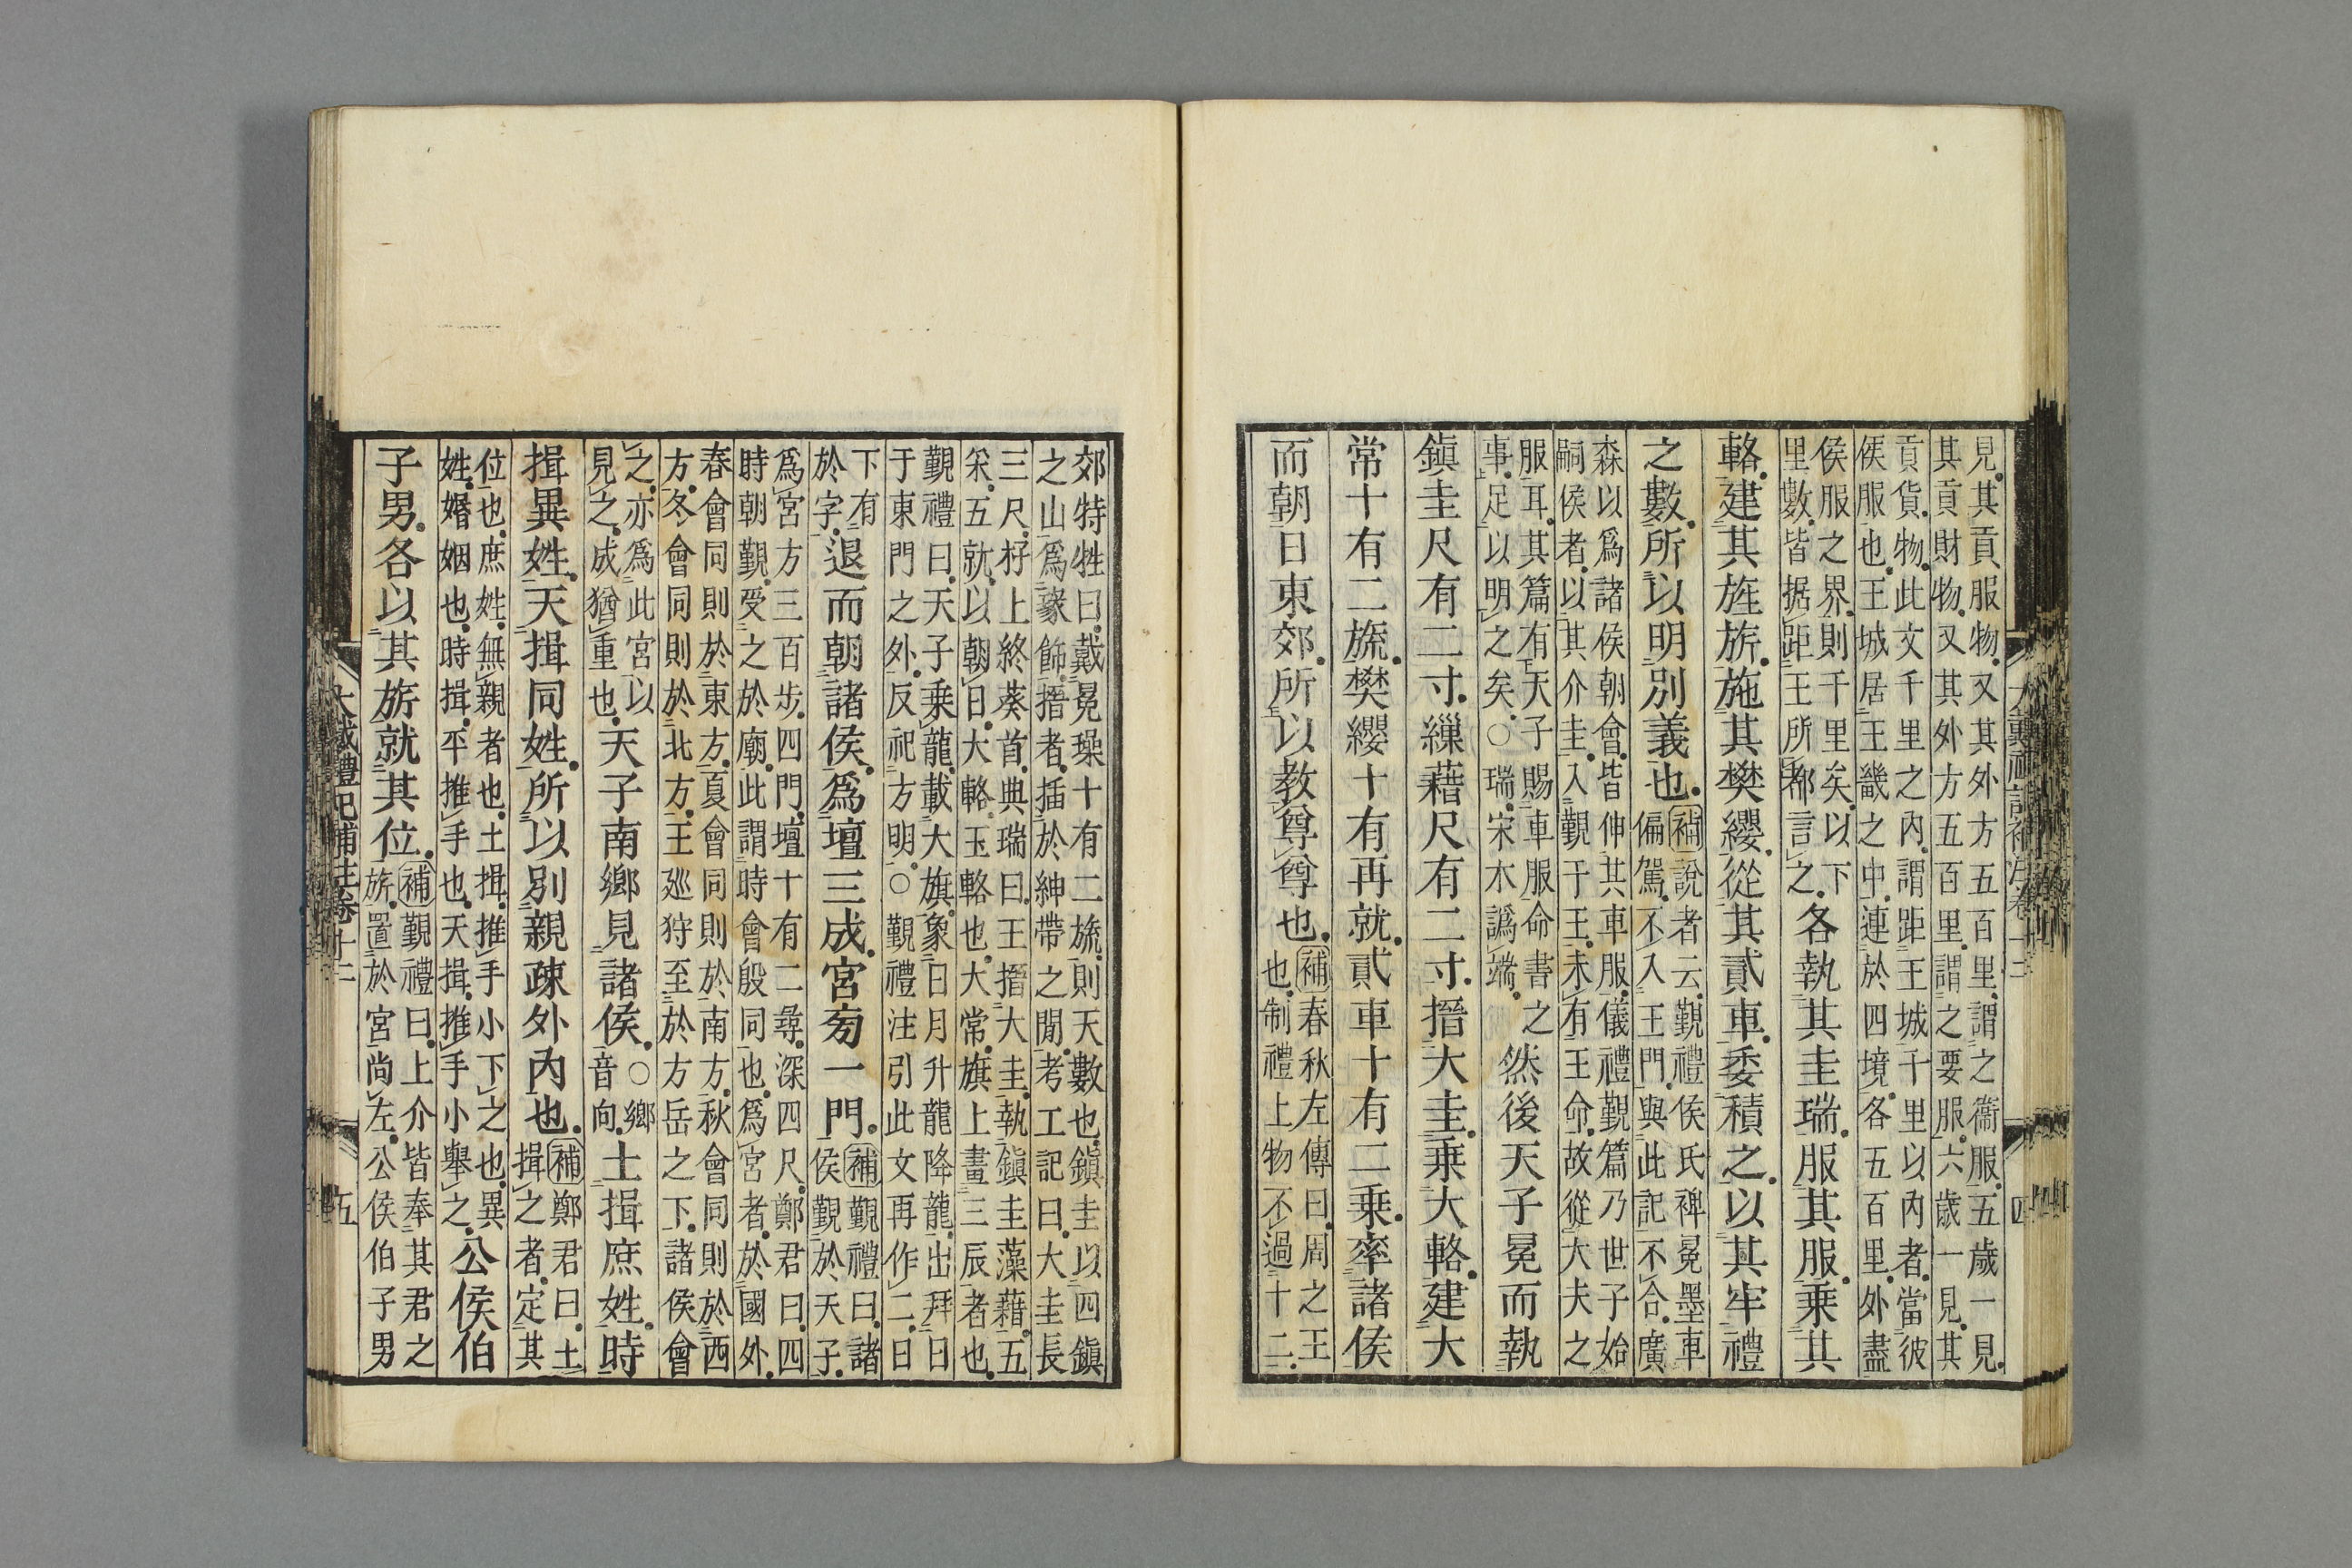 見其貢服物又其外方五百里謂之衞服五歲一見
其貢財物又其外方五百里謂之要服六歲一見其
貢貨物此文千里之内謂距王城千里以内者當彼
侯服也王城居王畿之中連於四境各五百里外盡
侯服之界則千里矣以下
里數皆据距王所都言之各執其圭瑞服其服乘其
輅建其旌旂施其樊纓從其貳車委積之以其牢禮
之數所以明別義也補說者云覲禮侯氏裨冕墨車
偏駕不入王門與此記不合廣
森以爲諸侯朝會皆伸其車服儀禮覲篇乃世子始
嗣侯者以其介圭入覲于王未有王命故從大夫之
服耳其篇有天子賜車服命書之
事足以明之矣○瑞宋本譌端然後天子冕而執
鎭圭尺有二寸繅藉尺有二寸搢大圭乘大輅建大
常十有二旒樊纓十有再就貳車十有二乘率諸侯
而朝日東郊所以教尊尊也補春秋左傳曰周之王
也制禮上物不過十二
大戴禮記補注卷十二
四
郊特牲曰戴冕璪十有二旒則天數也鎭圭以四鎭
之山爲瑑飾搢者插於紳帶之閒考工記曰大圭長
三尺杼上終葵首典瑞曰王搢大圭執鎭圭藻藉五
采五就以朝日大輅玉輅也大常旗上畫三辰者也
覲禮曰天子乘龍載大旗象日月升龍降龍出拜日
于東門之外反祀方明○覲禮注引此文再作二日
下有
於字退而朝諸侯爲壇三成宮旁一門補覲禮曰諸
侯覲於天子
爲宮方三百步四門壇十有二尋深四尺鄭君曰四
時朝覲受之於廟此謂時會殷同也爲宮者於國外
春會同則於東方夏會同則於南方秋會同則於西
方冬會同則於北方王廵狩至於方岳之下諸侯會
之亦爲此宮以
見之成猶重也天子南鄉見諸侯○鄉
音向土揖庶姓時
揖異姓天揖同姓所以別親疎外内也補鄭君曰土
揖之者定其
位也庶姓無親者也土揖推手小下之也異
姓婚姻也時揖平推手也天揖推手小舉之公侯伯
子男各以其旂就其位補覲禮曰上介皆奉其君之
旂置於宮尚左公侯伯子男
大戴禮記補注卷十二
五